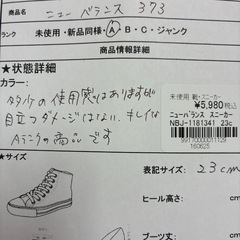 商品名 ニューバランス 373
ランク 未使用・新品同様・A・B・C・ジャンク
商品情報詳細
★状態詳細
カラー:
多少の使用感はありますが
目立つダメージはない、キレイな
Aランクの商品です
未使用 靴・スニーカー
¥5,980税込
ニューバランス スニーカー
NBJ-1181341 23c
9917000001129
160625
★サイズ
表記サイズ: 23cm
ヒール高さ: cm
ブーツ丈: